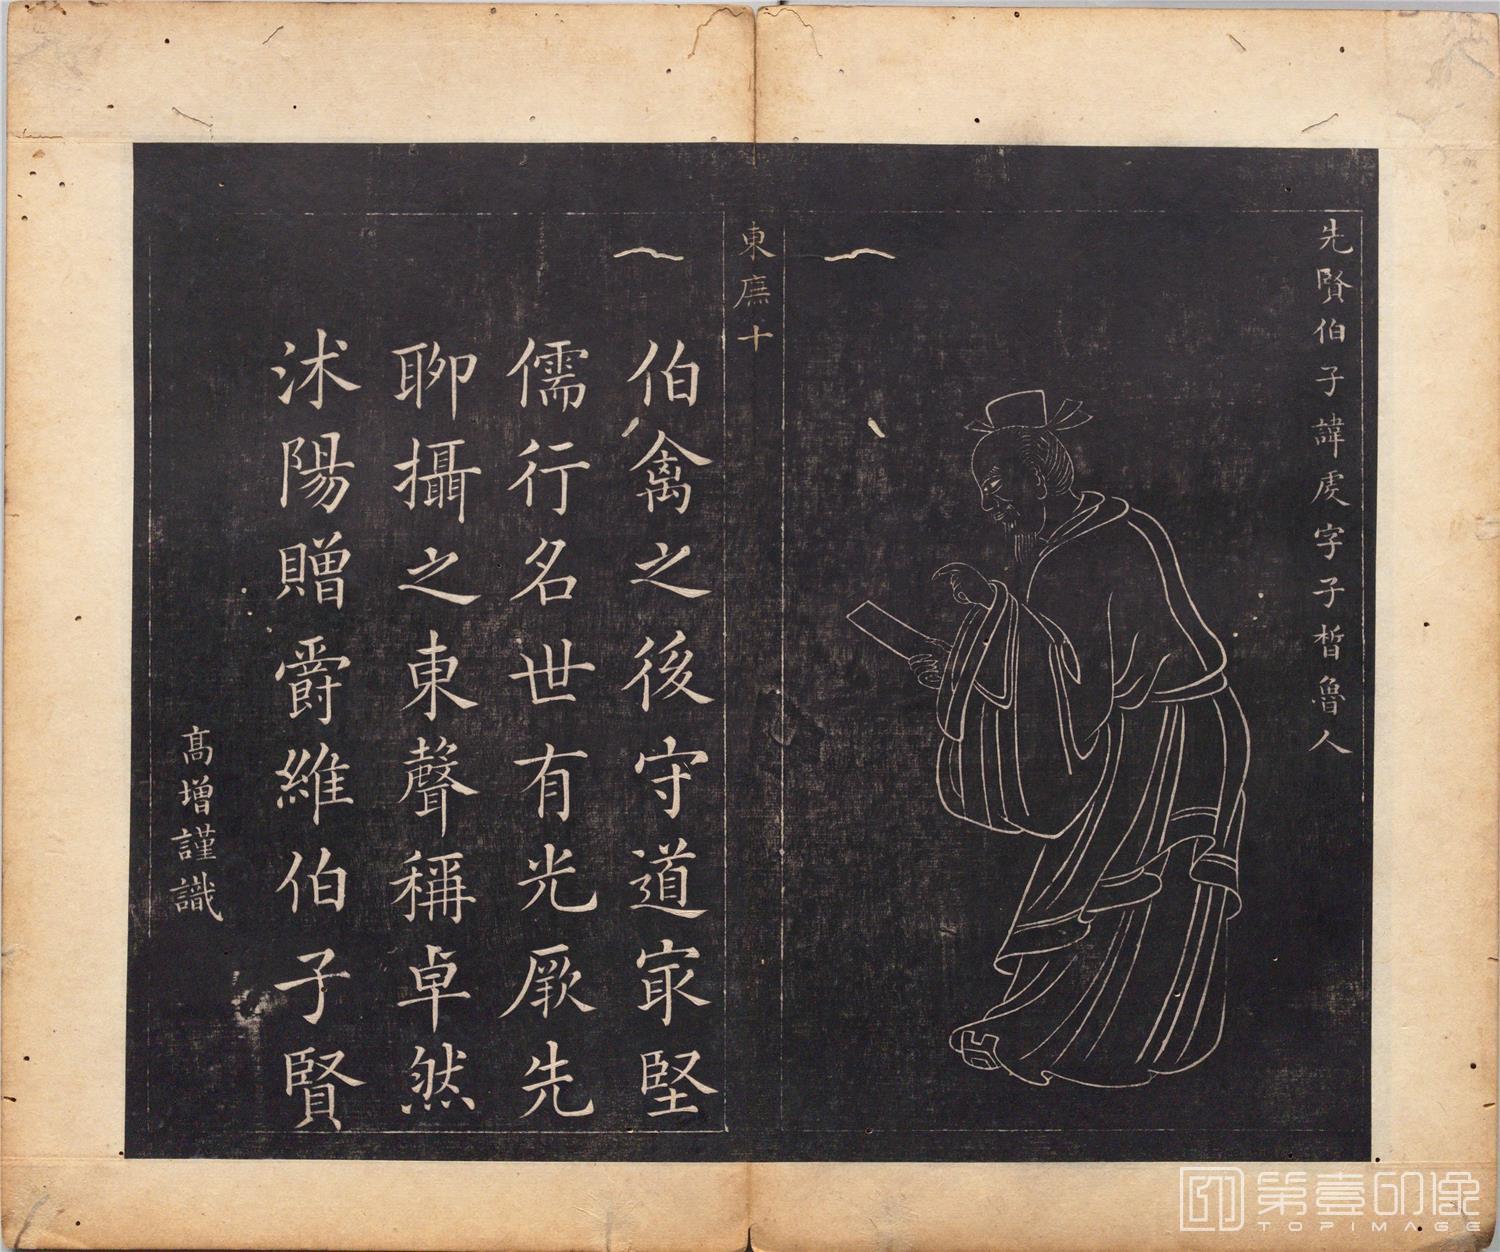 先賢伯子諱虔字子皙魯人
東廡十
伯禽之後守道㝡堅
儒行名世有光厥先
聊攝之東聲稱卓然
沭陽贈爵維伯子賢
高增謹識
第壹印像
TOPIMAGE